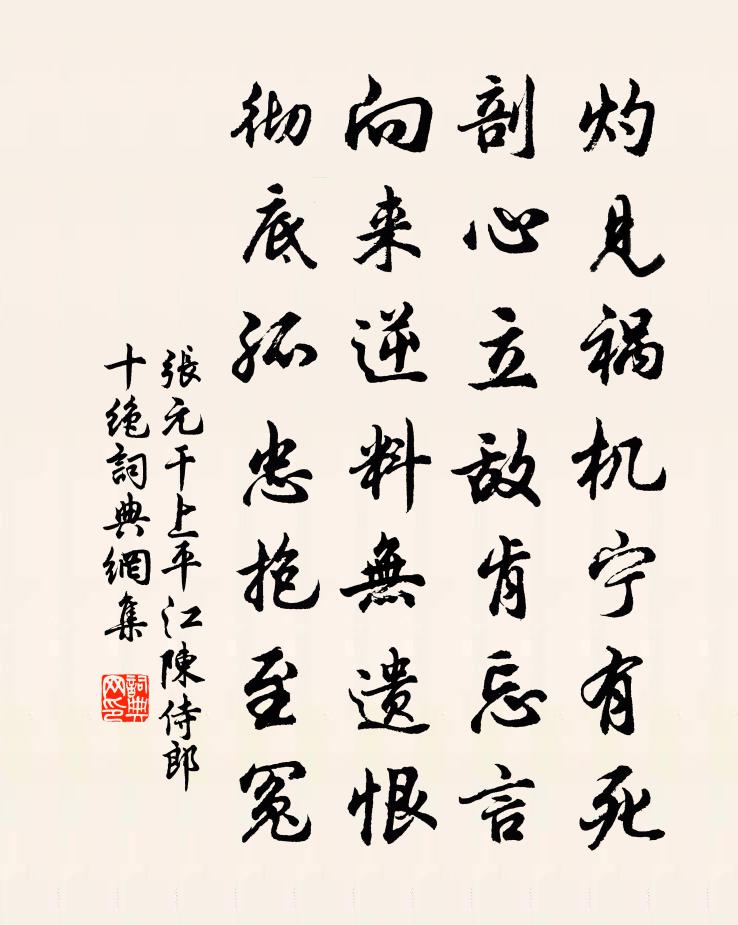 灼見祸机宁有死
剖心立敌肯忘言
向来逆料無遗恨
彻底孤忠抱至冤
張元干上平江陳侍郎
十绝詞典網集
詞典
网印